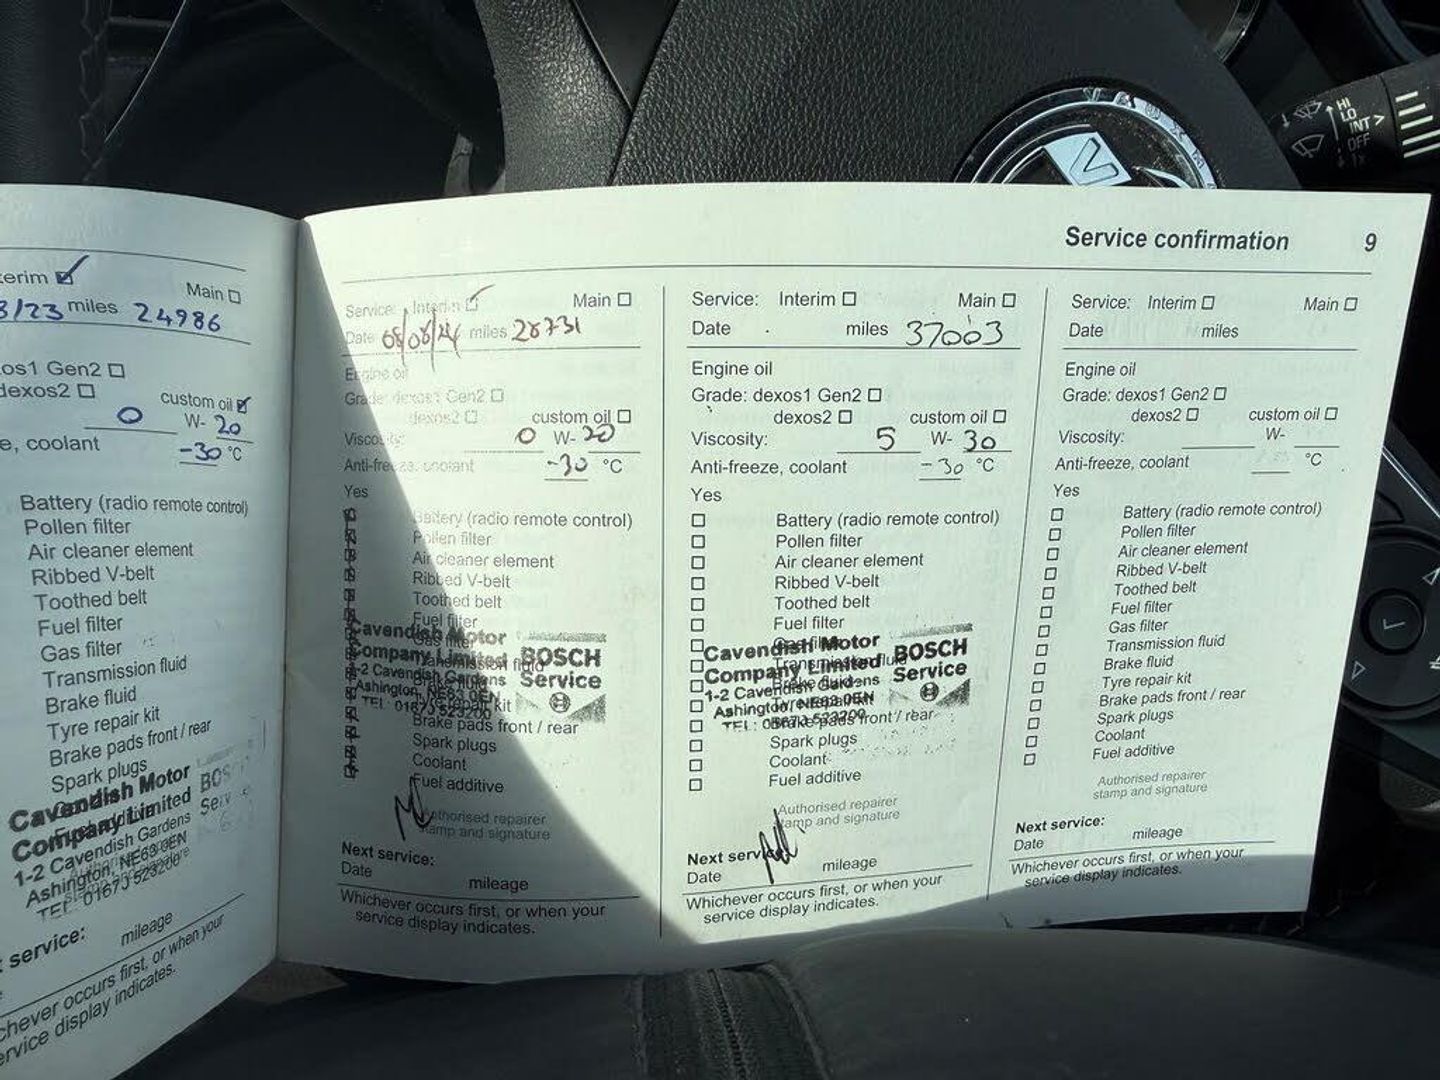 HI
LO
INT >
OFF
1x
V
Service confirmation 9
terim
Main
3/23 miles 24986
os1 Gen2
dexos2
custom oil
0 W- 20
e, coolant -30 °C
Battery (radio remote control)
Pollen filter
Air cleaner element
Ribbed V-belt
Toothed belt
Fuel filter
Gas filter
Transmission fluid
Brake fluid
Tyre repair kit
Brake pads front / rear
Spark plugs
Cavendish Motor
Company Limited
1-2 Cavendish Gardens
Ashington, NE63 0EN
TEL: 01670 523200
BOSCH
Service
t service:
mileage
chever occurs first, or when your
ervice display indicates.
Service: Interim Main
Date 08/08/24 miles 28731
Engine oil
Grade: dexos1 Gen2
dexos2 custom oil
Viscosity: 0 W- 20
Anti-freeze, coolant -30 °C
Yes
Battery (radio remote control)
Pollen filter
Air cleaner element
Ribbed V-belt
Toothed belt
Fuel filter
Gas filter
Transmission fluid
Brake fluid
Tyre repair kit
Brake pads front / rear
Spark plugs
Coolant
Fuel additive
Cavendish Motor
Company Limited
1-2 Cavendish Gardens
Ashington, NE63 0EN
TEL: 01670 523200
BOSCH
Service
Authorised repairer
stamp and signature
Next service:
Date mileage
Whichever occurs first, or when your
service display indicates.
Service: Interim Main
Date miles 37003
Engine oil
Grade: dexos1 Gen2
dexos2 custom oil
Viscosity: 5 W- 30
Anti-freeze, coolant -30 °C
Yes
Battery (radio remote control)
Pollen filter
Air cleaner element
Ribbed V-belt
Toothed belt
Fuel filter
Gas filter
Transmission fluid
Brake fluid
Tyre repair kit
Brake pads front / rear
Spark plugs
Coolant
Fuel additive
Cavendish Motor
Company Limited
1-2 Cavendish Gardens
Ashington, NE63 0EN
TEL: 01670 523200
BOSCH
Service
Authorised repairer
stamp and signature
Next service:
Date mileage
Whichever occurs first, or when your
service display indicates.
Service: Interim Main
Date miles
Engine oil
Grade: dexos1 Gen2
dexos2 custom oil
Viscosity: W-
Anti-freeze, coolant °C
Yes
Battery (radio remote control)
Pollen filter
Air cleaner element
Ribbed V-belt
Toothed belt
Fuel filter
Gas filter
Transmission fluid
Brake fluid
Tyre repair kit
Brake pads front / rear
Spark plugs
Coolant
Fuel additive
Authorised repairer
stamp and signature
Next service:
Date mileage
Whichever occurs first, or when your
service display indicates.